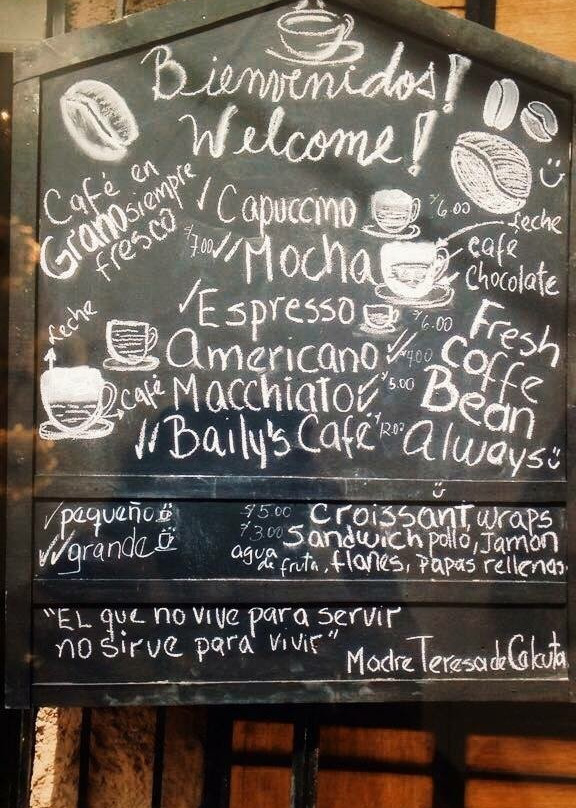 Bienvenidos!
Welcome!
Café en
Grano siempre
fresco
✓ Capuccino
s/6.00
s/7.00 ✓✓ Mocha
leche
café
Chocolate
✓ Espresso
s/6.00
leche
café
Americano ✓✓ s/4.00
Macchiato ✓✓ s/5.00
✓✓ Baily's Café s/12.00
Fresh
Coffe
Bean
Always
✓ pequeño
✓✓ grande
s/5.00 Croissant, wraps
s/3.00 Sandwich pollo, Jamon
agua de fruta, flanes, papas rellenas
"EL que no vive para servir
no sirve para vivir"
Madre Teresa de Calcuta